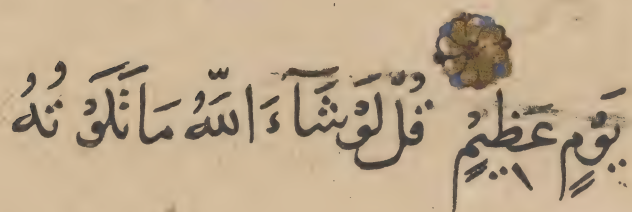 يَوْمٍ عَظِيمٍ قُل لَّوْ شَآءَ اللَّهُ مَا تَلَوْتُهُ